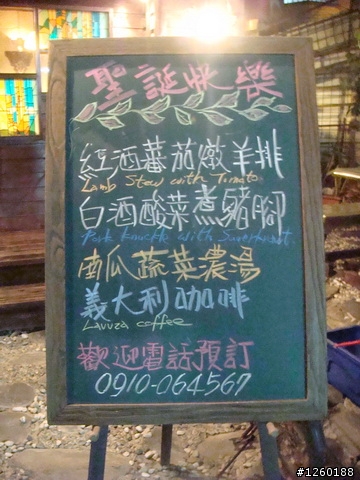 聖誕快樂
紅酒蕃茄燉羊排
Lamb Stew with Tomato
白酒酸菜煮豬腳
Pork knuckle with Sauerkraut
南瓜蔬菜濃湯
義大利咖啡
Lavvza coffee
歡迎電話預訂
0910-064567
#1260188